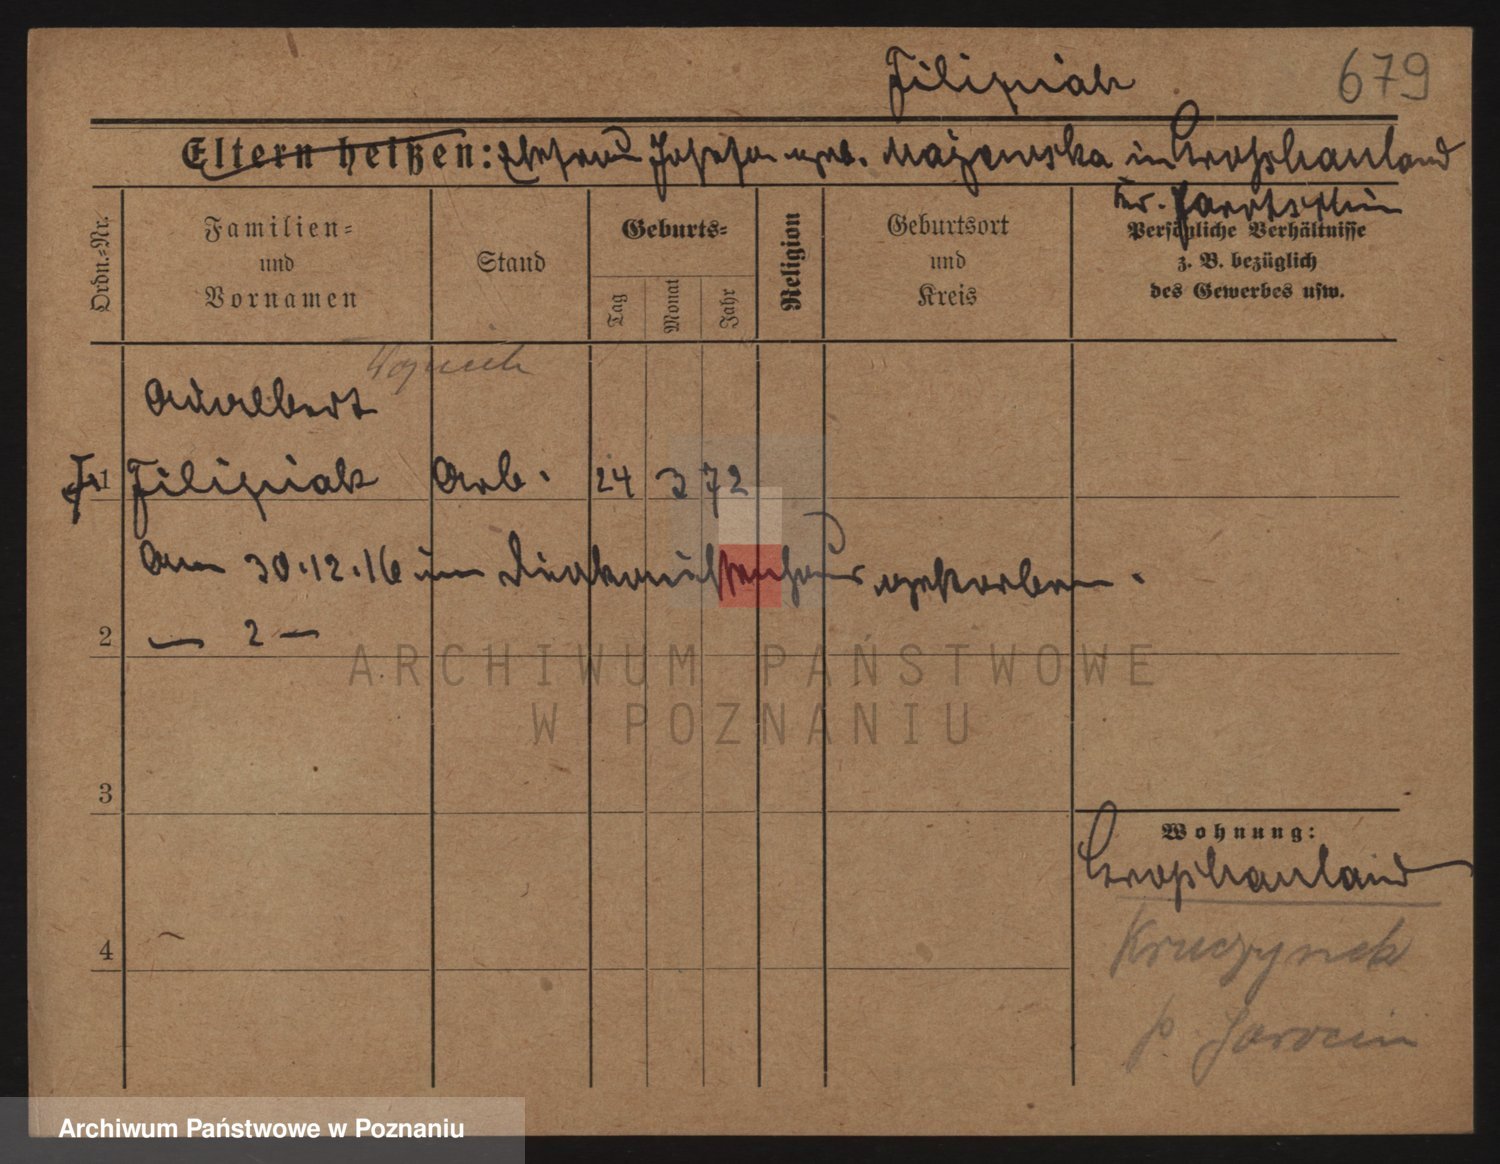 Filipiak 679
Eltern heißen: Ehefrau Josefa geb. Majewska in Großhauland
Kr. Jarotschin
Ordn.-Nr.
Familien- und Vornamen
Stand
Geburts-
Tag
Monat
Jahr
Religion
Geburtsort und Kreis
Persönliche Verhältnisse z. B. bezüglich des Gewerbes usw.
Adalbert
1 Filipiak Arb. 24 3 72
Am 30.12.16 im Diakonissenhaus gestorben.
2 — 2 —
3
4
Wohnung:
Großhauland
Kruczynek
p. Jarocin
ARCHIWUM PAŃSTWOWE
W POZNANIU
Archiwum Państwowe w Poznaniu